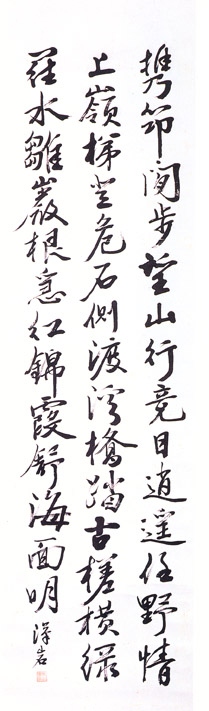 携筇閑步望山行竟日逍遙任野情
上嶺梯登危石側渡溪橋踏古槎橫綠
羅水皺巖根急紅錦霞舒海面明